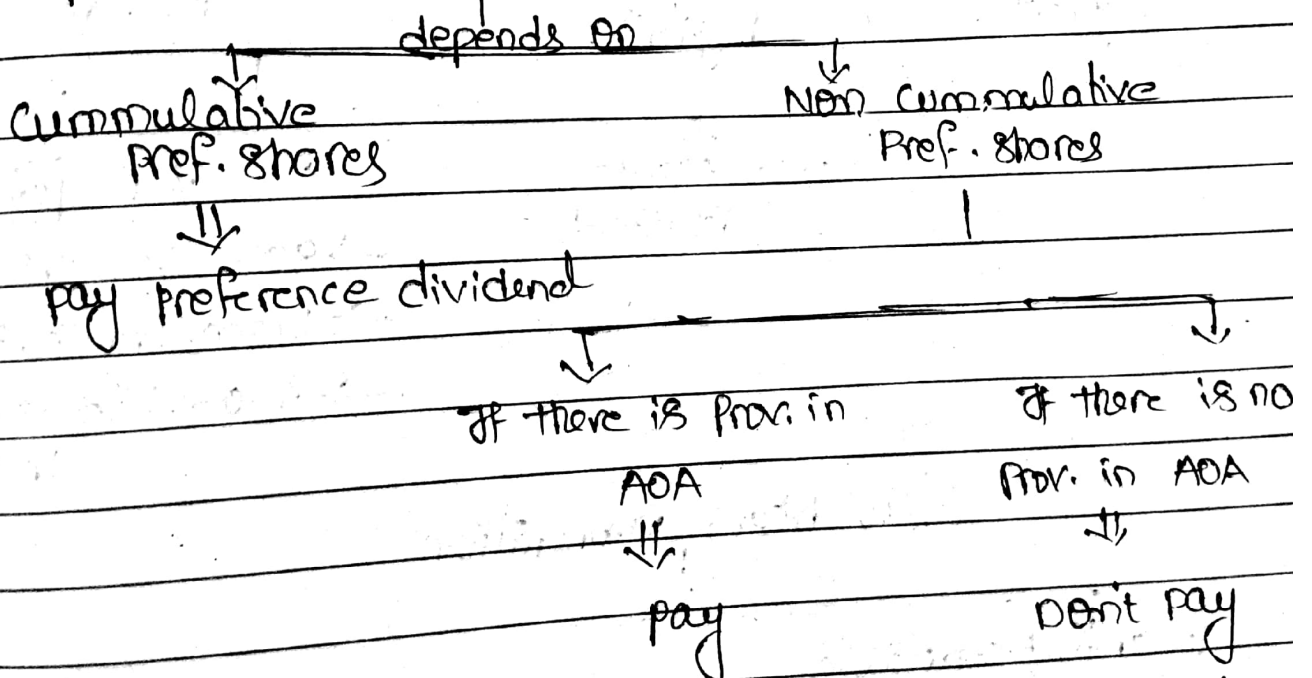 depends on
Cummulative
Pref. shares
Non Cummulative
Pref. shares
Pay preference dividend
If there is Prov. in
AOA
If there is no
Prov. in AOA
Pay
Don't pay